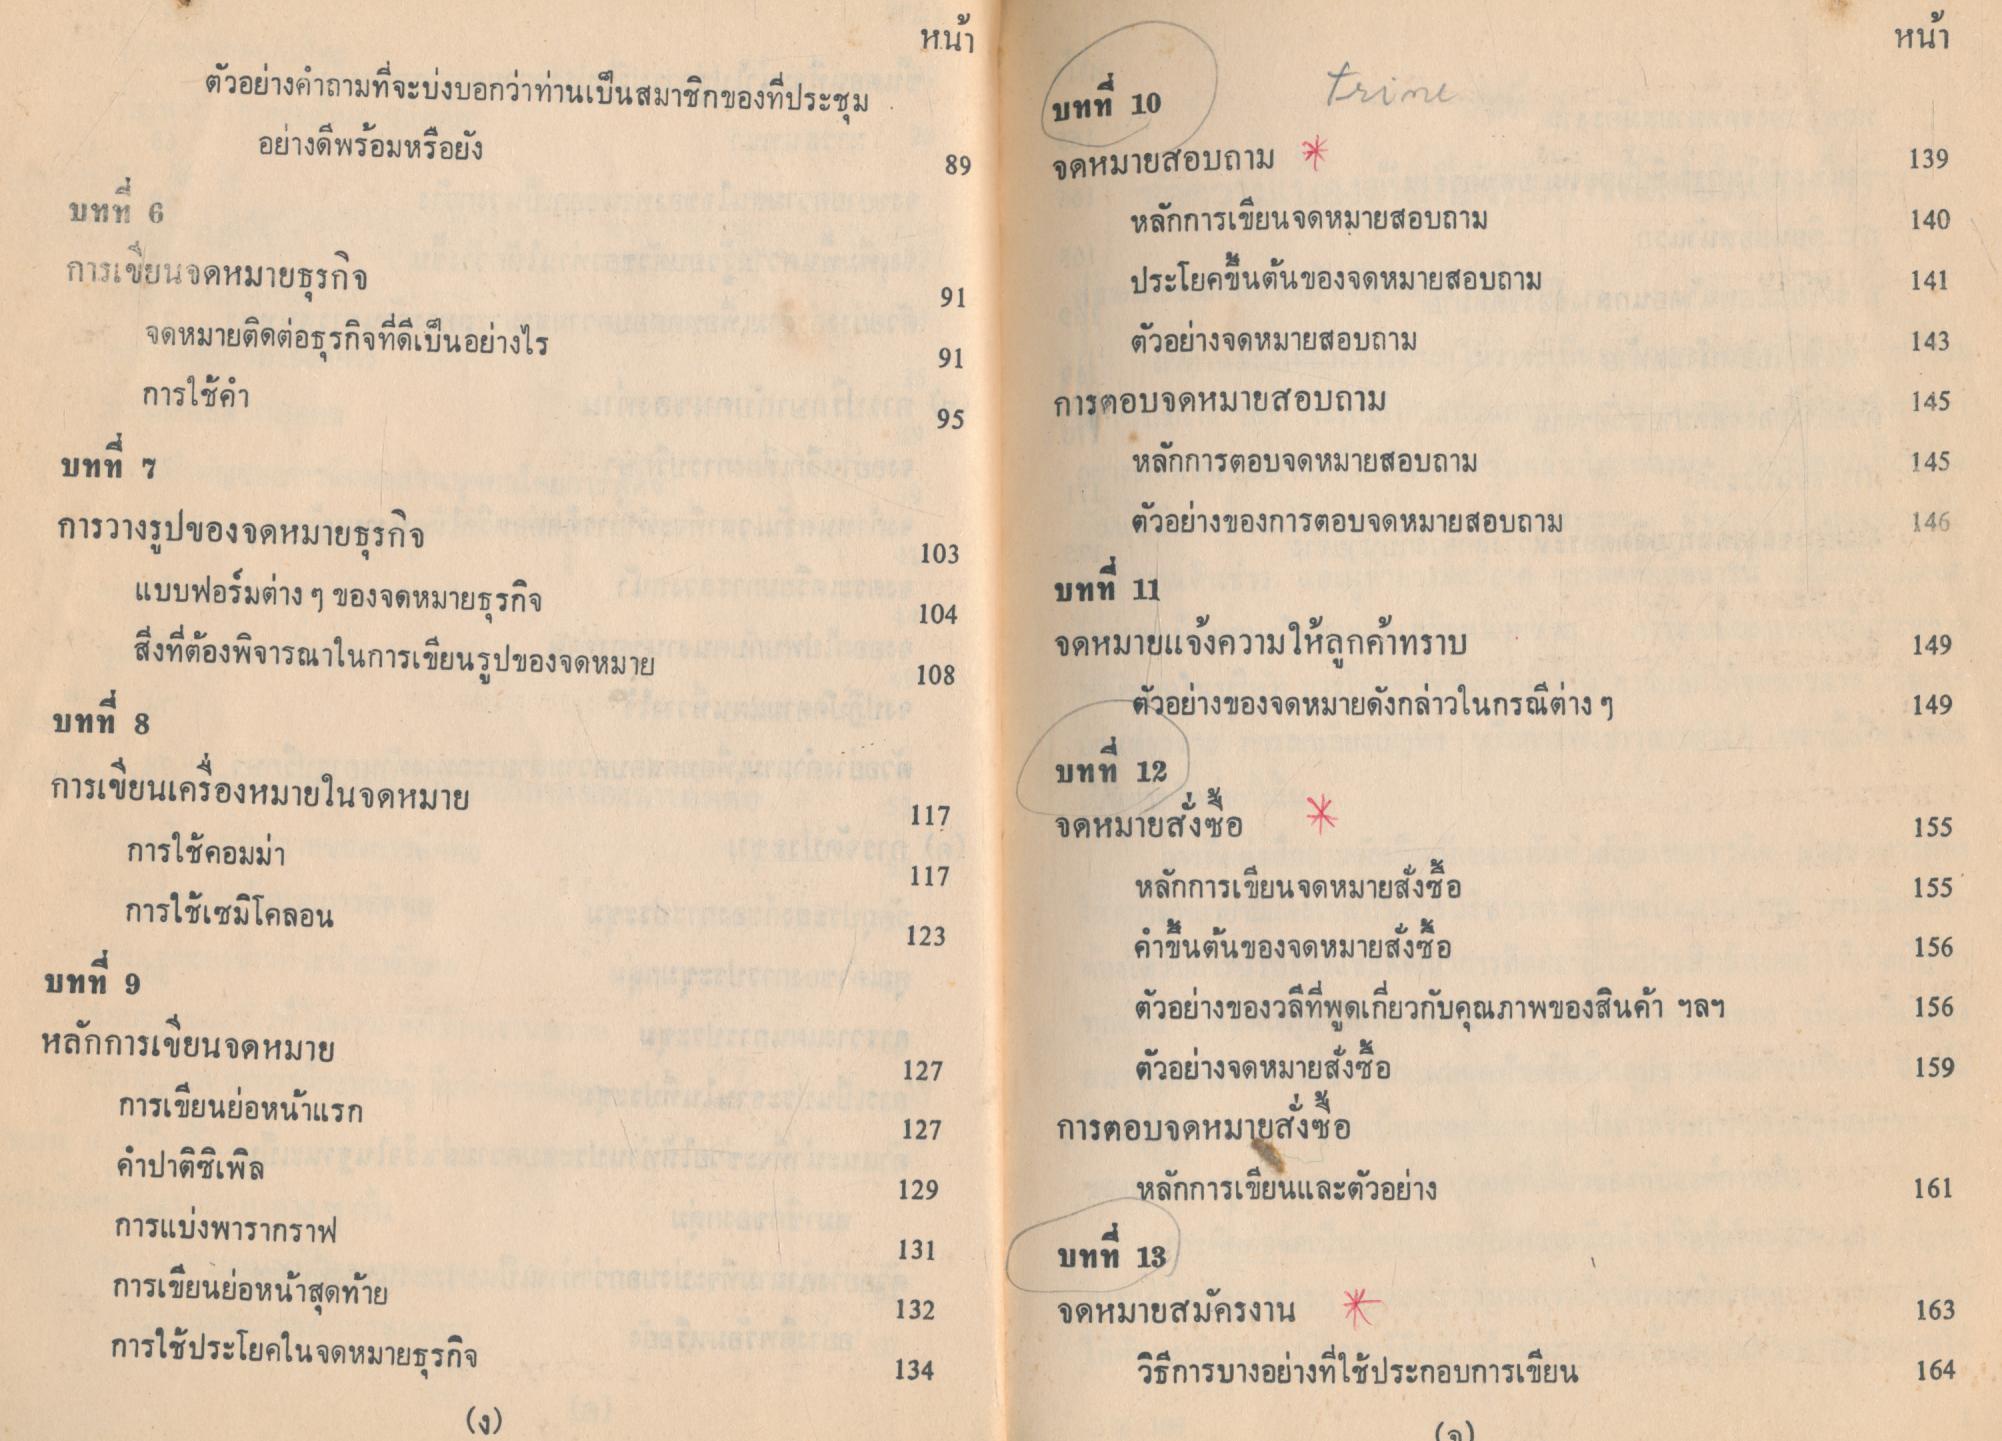 หน้า
ตัวอย่างคำถามที่จะบ่งบอกว่าท่านเป็นสมาชิกของที่ประชุม
อย่างดีพร้อมหรือยัง 89
บทที่ 6
การเขียนจดหมายธุรกิจ 91
จดหมายติดต่อธุรกิจที่ดีเป็นอย่างไร 91
การใช้คำ 95
บทที่ 7
การวางรูปของจดหมายธุรกิจ 103
แบบฟอร์มต่าง ๆ ของจดหมายธุรกิจ 104
สิ่งที่ต้องพิจารณาในการเขียนรูปของจดหมาย 108
บทที่ 8
การเขียนเครื่องหมายในจดหมาย 117
การใช้คอมม่า 117
การใช้เซมิโคลอน 123
บทที่ 9
หลักการเขียนจดหมาย 127
การเขียนย่อหน้าแรก 127
คำปาติซิเพิล 129
การแบ่งพารากราฟ 131
การเขียนย่อหน้าสุดท้าย 132
การใช้ประโยคในจดหมายธุรกิจ 134
(ง)
หน้า
บทที่ 10
จดหมายสอบถาม * 139
หลักการเขียนจดหมายสอบถาม 140
ประโยคขึ้นต้นของจดหมายสอบถาม 141
ตัวอย่างจดหมายสอบถาม 143
การตอบจดหมายสอบถาม 145
หลักการตอบจดหมายสอบถาม 145
ตัวอย่างของการตอบจดหมายสอบถาม 146
บทที่ 11
จดหมายแจ้งความให้ลูกค้าทราบ 149
ตัวอย่างของจดหมายดังกล่าวในกรณีต่าง ๆ 149
บทที่ 12
จดหมายสั่งซื้อ * 155
หลักการเขียนจดหมายสั่งซื้อ 155
คำขึ้นต้นของจดหมายสั่งซื้อ 156
ตัวอย่างของวลีที่พูดเกี่ยวกับคุณภาพของสินค้า ฯลฯ 156
ตัวอย่างจดหมายสั่งซื้อ 159
การตอบจดหมายสั่งซื้อ
หลักการเขียนและตัวอย่าง 161
บทที่ 13
จดหมายสมัครงาน * 163
วิธีการบางอย่างที่ใช้ประกอบการเขียน 164
(จ)